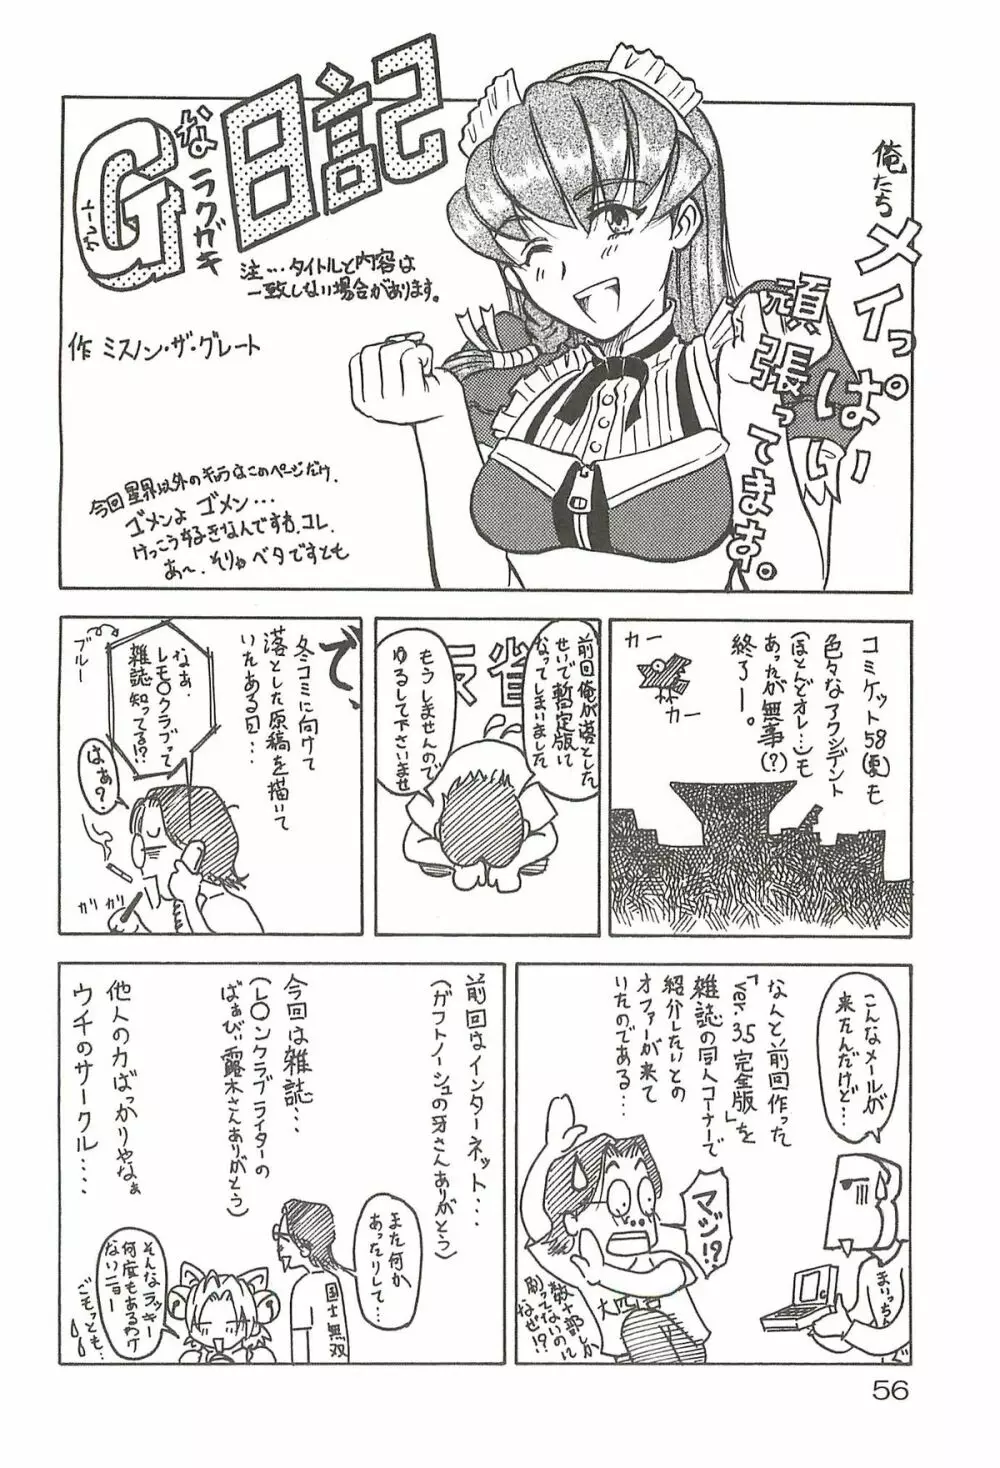 Gなラクガキ日記
注…タイトルと内容は
一致しない場合があります。
作 ミスノン・ザ・グレート
俺たち
メイっぱい
頑張ってまぁ。
今回星界以外のキャラはこのページだけ。
ゴメンよ ゴメン…
けっこう好きなんですわ、コレ。
あ〜、そりゃベタですとも
コミケット58(夏)も
色々なアクシデント
(ほとんどオレ…)も
あったが無事(?)
終了ー。
カー
カー
前回俺が落とした
せいで暫定版に
なってしまいました
反省
もうしませんので
ゆるして下さいませ
で、
冬コミに向けて
落とした原稿を描いて
いたある日…
ブルー
なぁ、
レモ〇クラブって
雑誌知ってる!?
はぁ?
ガリガリ
こんなメールが
来たんだけど…
なんと前回作った
「ver.3.5完全版」を
雑誌の同人コーナーで
紹介したいとの
オファーが来て
いたのである…
マジ!?
数十部しか
刷ってないのに
なぜ!?
まいっちん
前回はインターネット…
(ガフトノーシュの牙さんありがとう)
今回は雑誌…
(レ〇ンクラブライターの
ばぁびぃ露木さんありがとう)
他人の力ばっかりやなぁ
ウチのサークル…
また何か
あったりして…
国士無双
そんなラッキー
何度もあるわけ
ないニョー
ごもっとも。
56